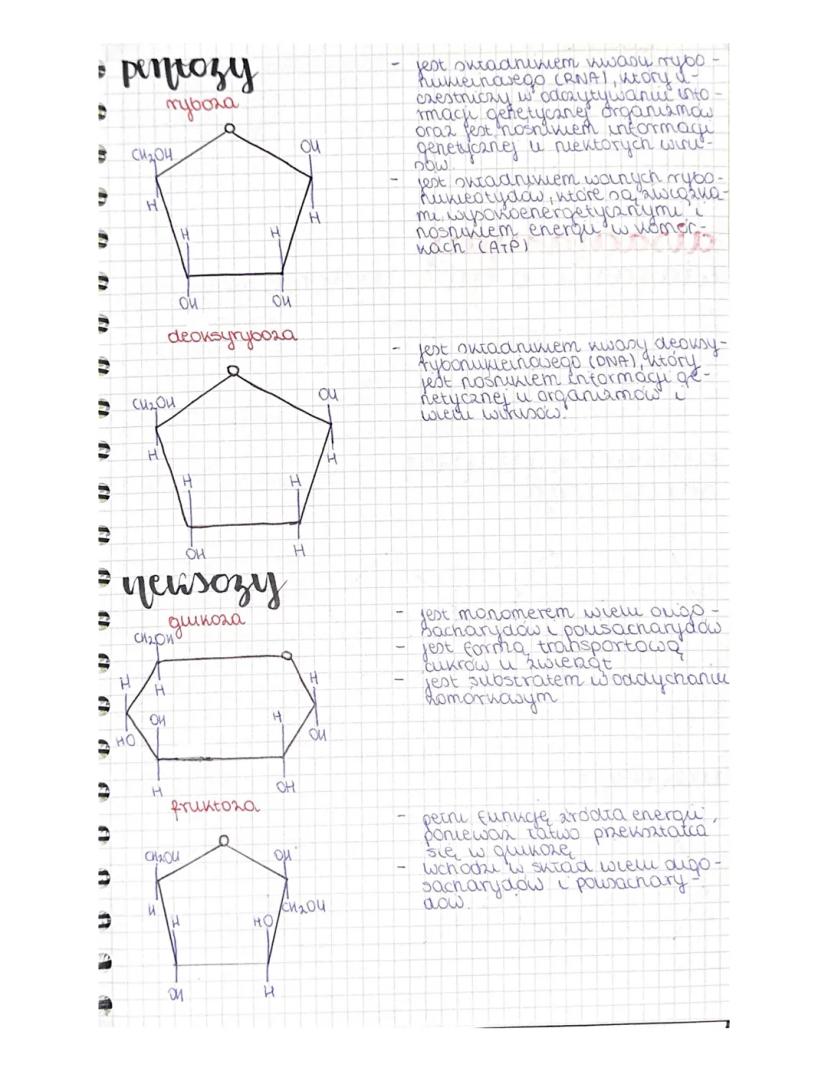 pentozy
ryboza
O
CH₂OH
OH
H
H
H
H
OH
OH
- jest składnikiem kwasu rybo-
nukleinowego (RNA), który u-
czestniczy w odczytywaniu info-
rmacji genetycznej organizmów
oraz jest nośnikiem informacji
genetycznej u niektórych wiru-
sów.
- jest składnikiem wolnych rybo-
nukleotydów, które są związka-
mi wysokoenergetycznymi i
nośnikiem energii w komór-
kach (ATP)
deoksyryboza
O
CH₂OH
OH
H
H
H
H
OH
H
- jest składnikiem kwasu deoksy-
rybonukleinowego (DNA), który
jest nośnikiem informacji ge-
netycznej u organizmów i
wielu wirusów.
heksozy
glukoza
CH₂OH
O
H
H
H
OH
H
HO
OH
H
OH
- jest monomerem wielu oligo-
sacharydów i polisacharydów
- jest formą transportową
cukrów u zwierząt
- jest substratem w oddychaniu
komórkowym
fruktoza
O
CH₂OH
OH
H
H
HO
CH₂OH
OH
H
- pełni funkcję źródła energii,
ponieważ łatwo przekształca
się w glukozę
- wchodzi w skład wielu oligo-
sacharydów i polisachary-
dów.